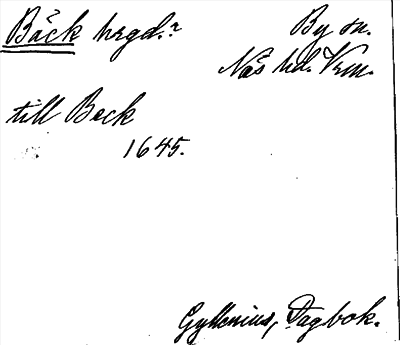 Bäck hrgd.? By sn.
Näs hd. Vrm.
till Beck
1645.
Gyllenius, Dagbok.